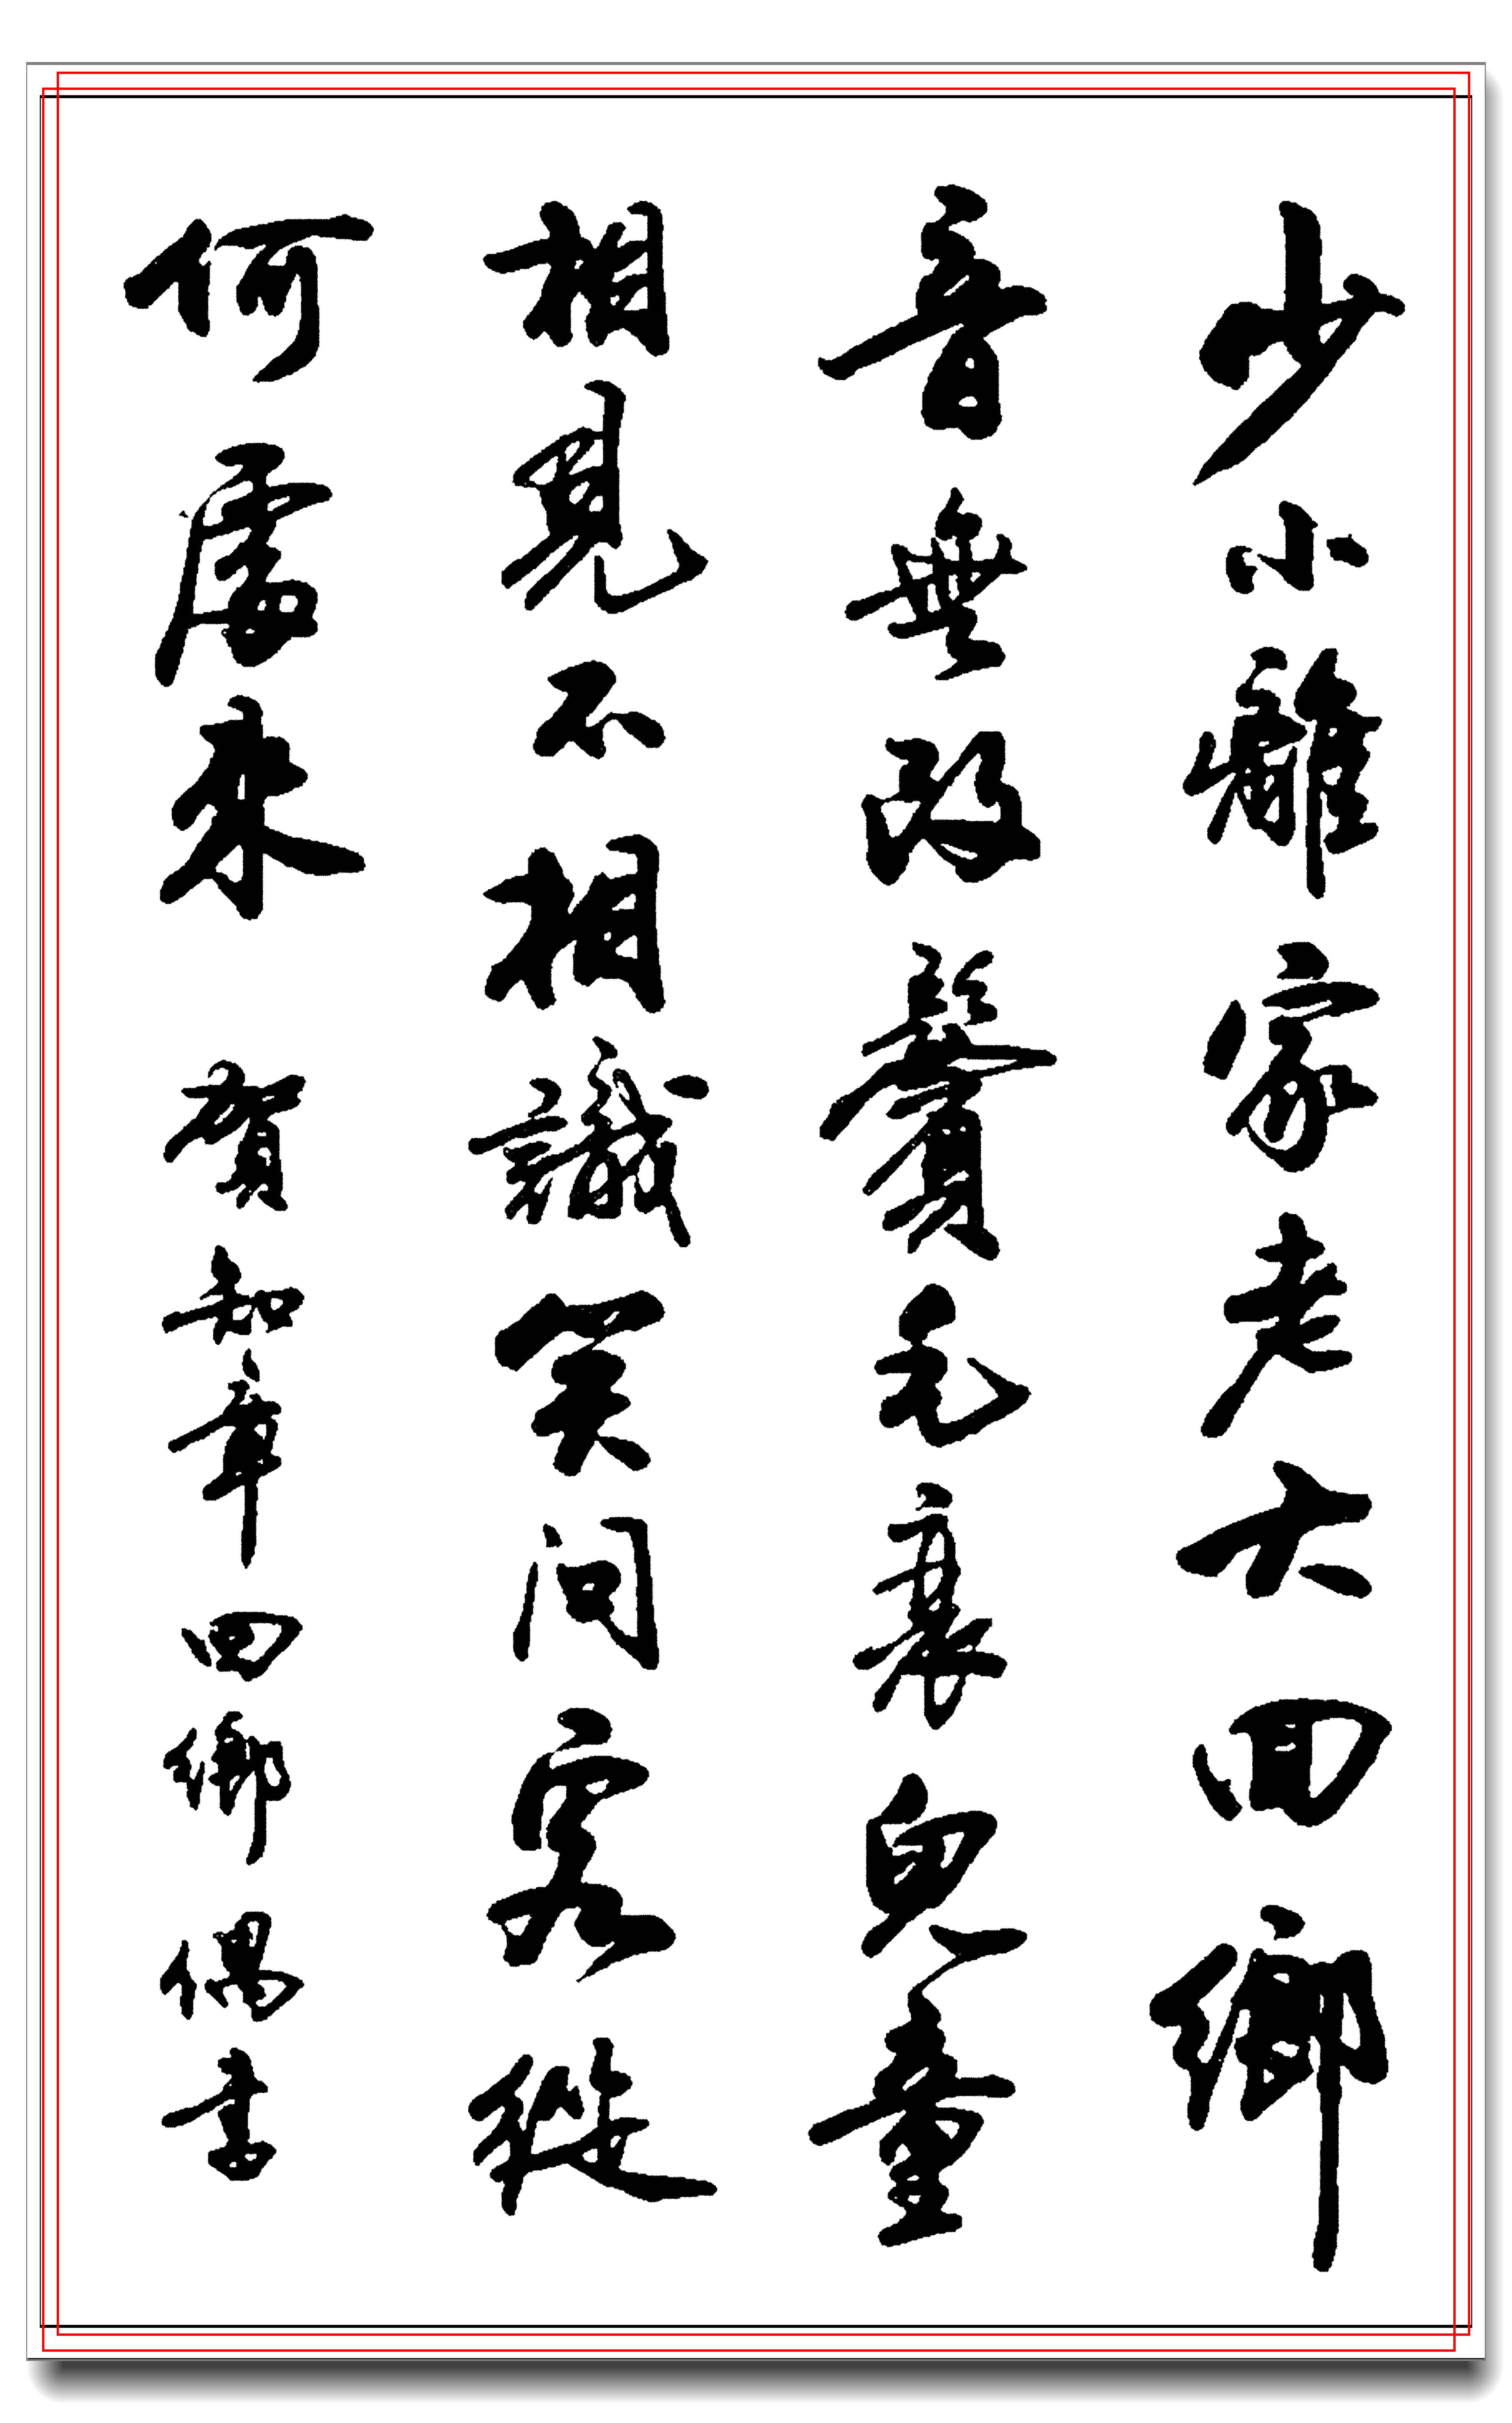 少小離家老大回鄉
音無改鬢毛衰兒童
相見不相識笑問客從
何處來 賀知章回鄉偶書